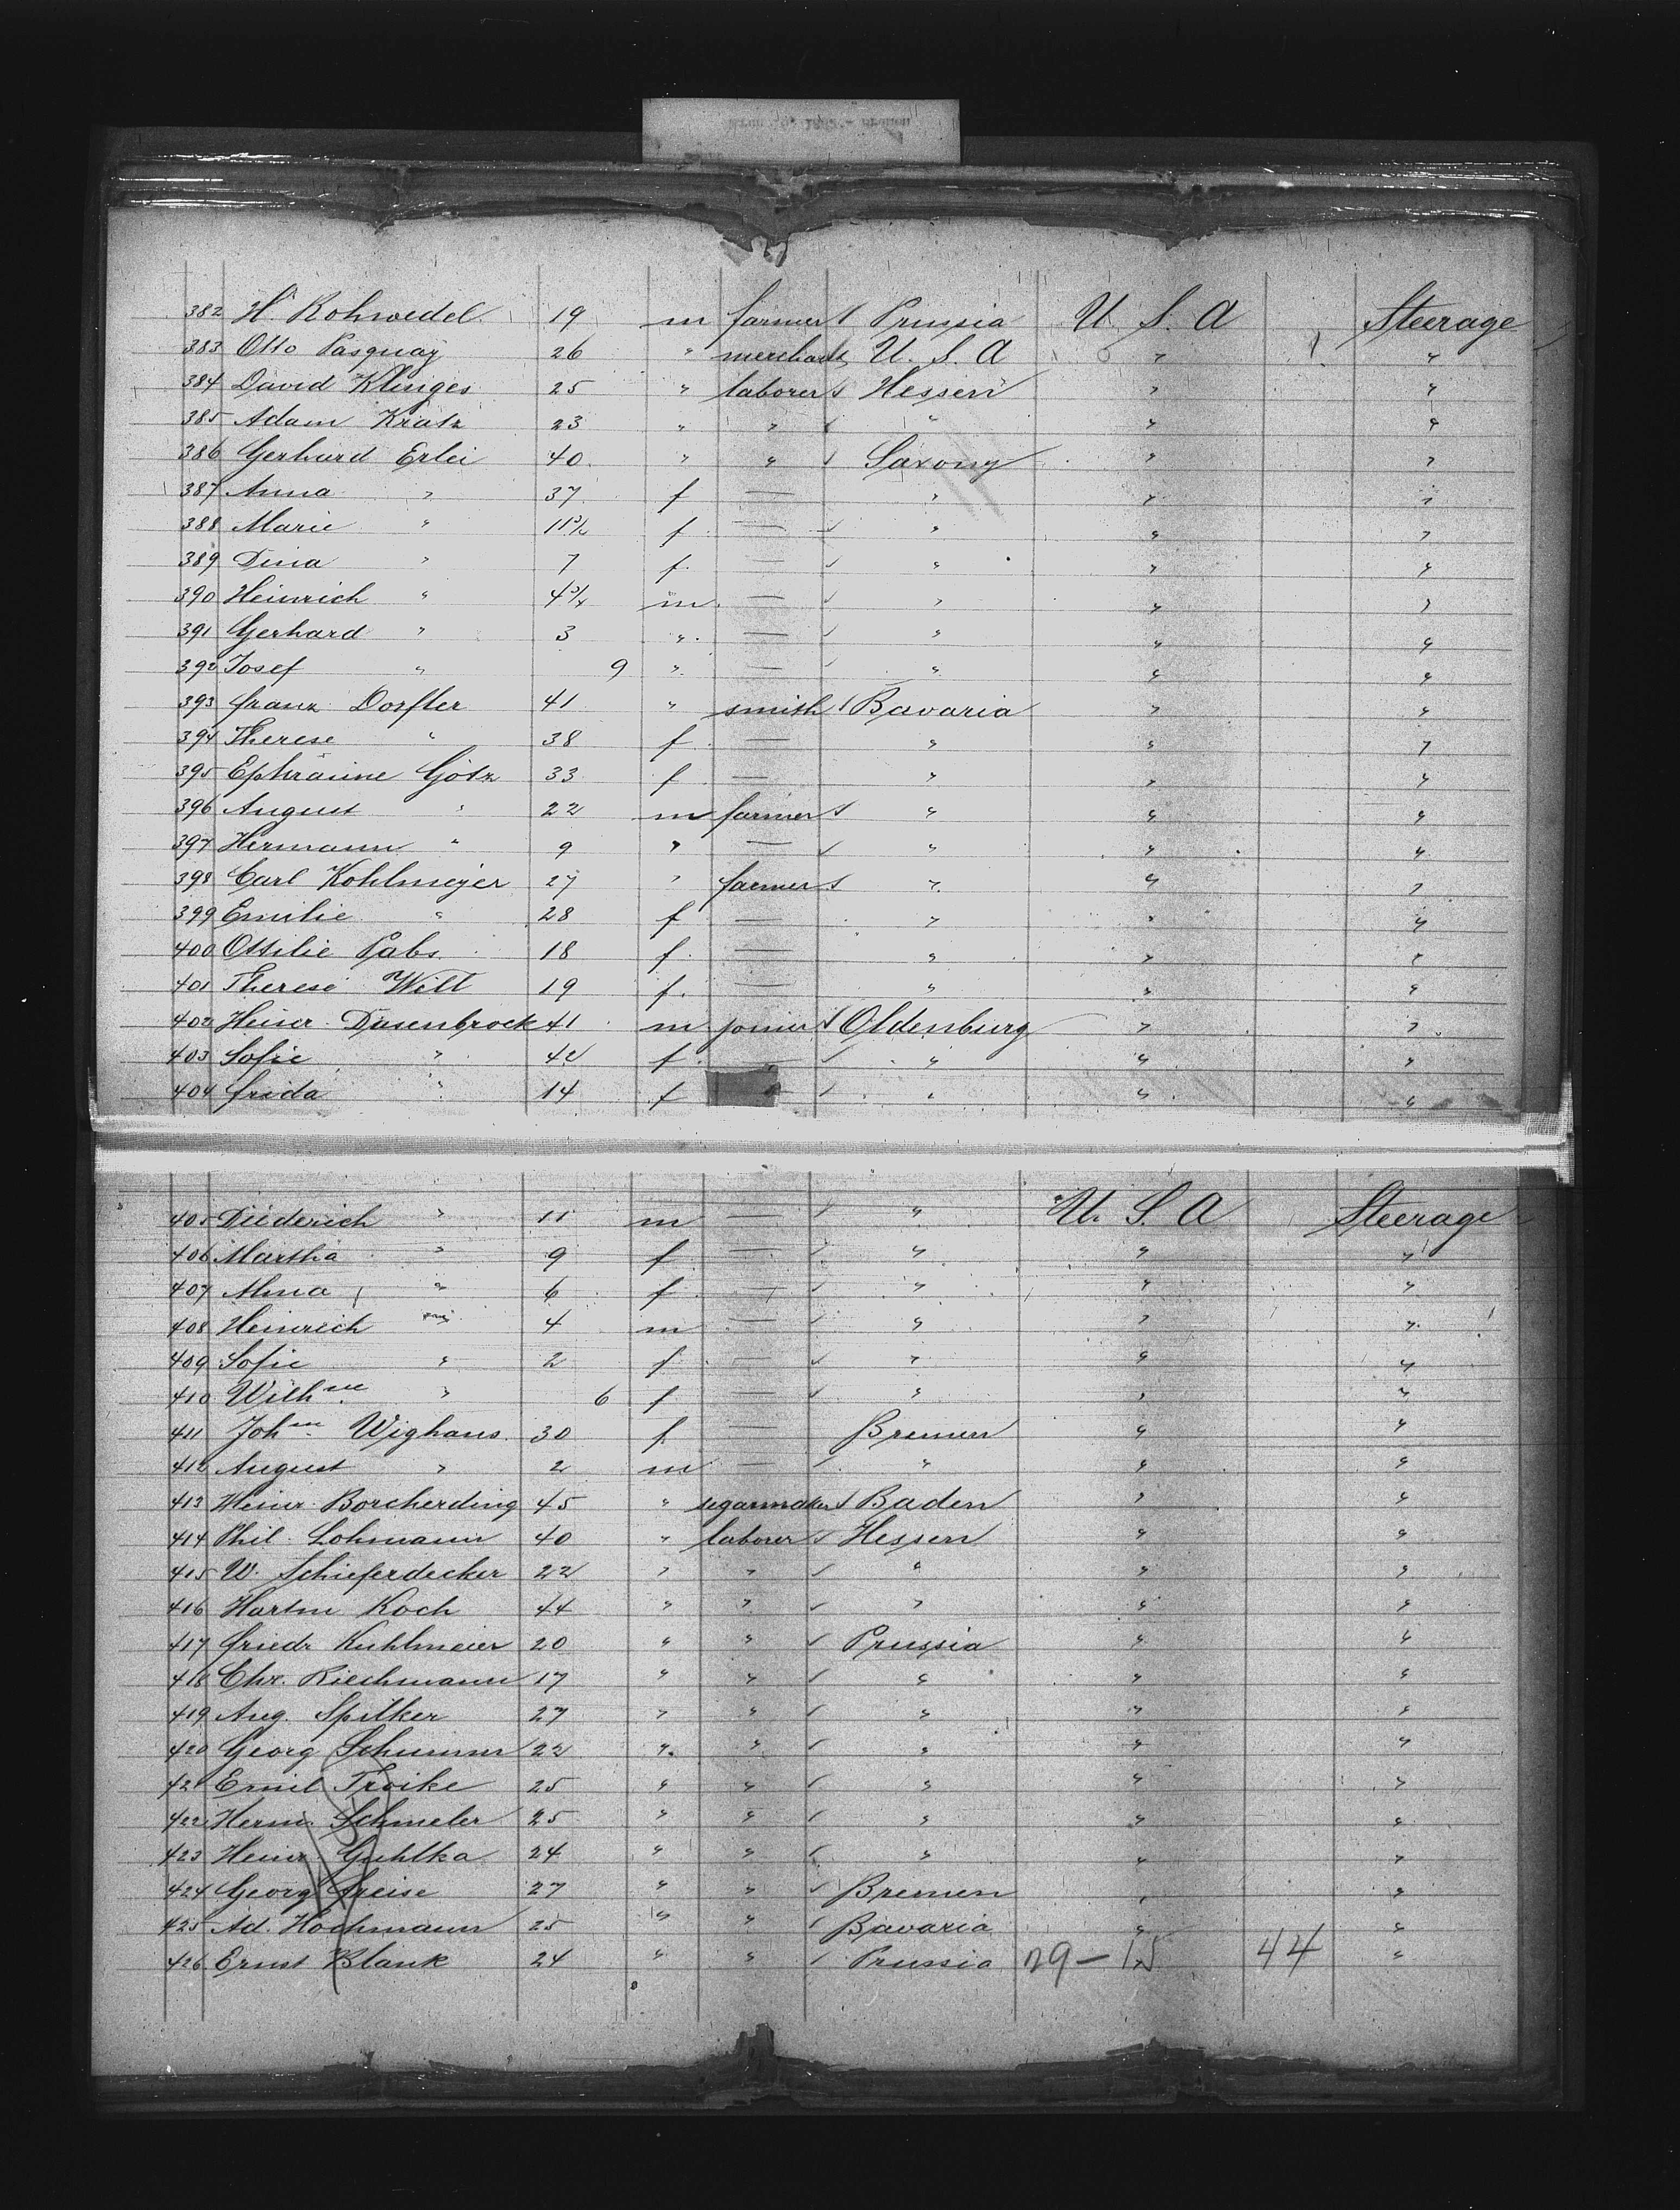 382 H. Rohwedel 19 m farmer Prussia U. S. A Steerage
383 Otto Pasquay 26 " merchant U. S. A " "
384 David Klinges 25 " laborer Hessen " "
385 Adam Kratz 23 " " " " "
386 Gerhard Erlei 40 " " Saxony " "
387 Anna " 37 f — " " "
388 Marie " f — " " "
389 Dina " 7 f — " " "
390 Heinrich " m — " " "
391 Gerhard " 3 " — " " "
392 Josef " 9 " — " " "
393 Franz Dorfler 41 " smith Bavaria " "
394 Therese " 38 f — " " "
395 Ephraime Götz 33 f — " " "
396 August " 22 m farmer " " "
397 Hermann " 9 " — " " "
398 Carl Kohlmeijer 27 " farmer " " "
399 Emilie " 28 f — " " "
400 Ottilie Pabs 18 f — " " "
401 Therese Witt 19 f. — " " "
402 Heinr. Dusenbrock 41 m joiner Oldenburg " "
403 Sofie " 42 f — " " "
404 Frida " 14 f — " " "
405 Diederich " 11 m — " U. S. A Steerage
406 Martha " 9 f — " " "
407 Alma " 6 f — " " "
408 Heinrich " 4 m — " " "
409 Sofie " 2 f — " " "
410 Wilh.ne " 6 f — " " "
411 Joh.ne Wighans 30 f — Bremen " "
412 August " 2 m — " " "
413 Heinr. Borcherding 45 " segarmaker Baden " "
414 Phil. Lohmann 40 " laborer Hessen " "
415 W. Schieferdecker 22 " " " " "
416 Hartm Koch 44 " " " " "
417 Friedr Kuhlmeier 20 " " Prussia " "
418 Chr. Riechmann 17 " " " " "
419 Aug. Spilker 27 " " " " "
420 Georg Schumm 22 " " " " "
421 Emil Troike 25 " " " " "
422 Herm. Schmeler 25 " " " " "
423 Heinr. Guhlka 24 " " " " "
424 Georg Freise 27 " " Bremen " "
425 Ad. Hochmann 25 " " Bavaria " "
426 Ernst Blank 24 " " Prussia 29 – 15 44 "